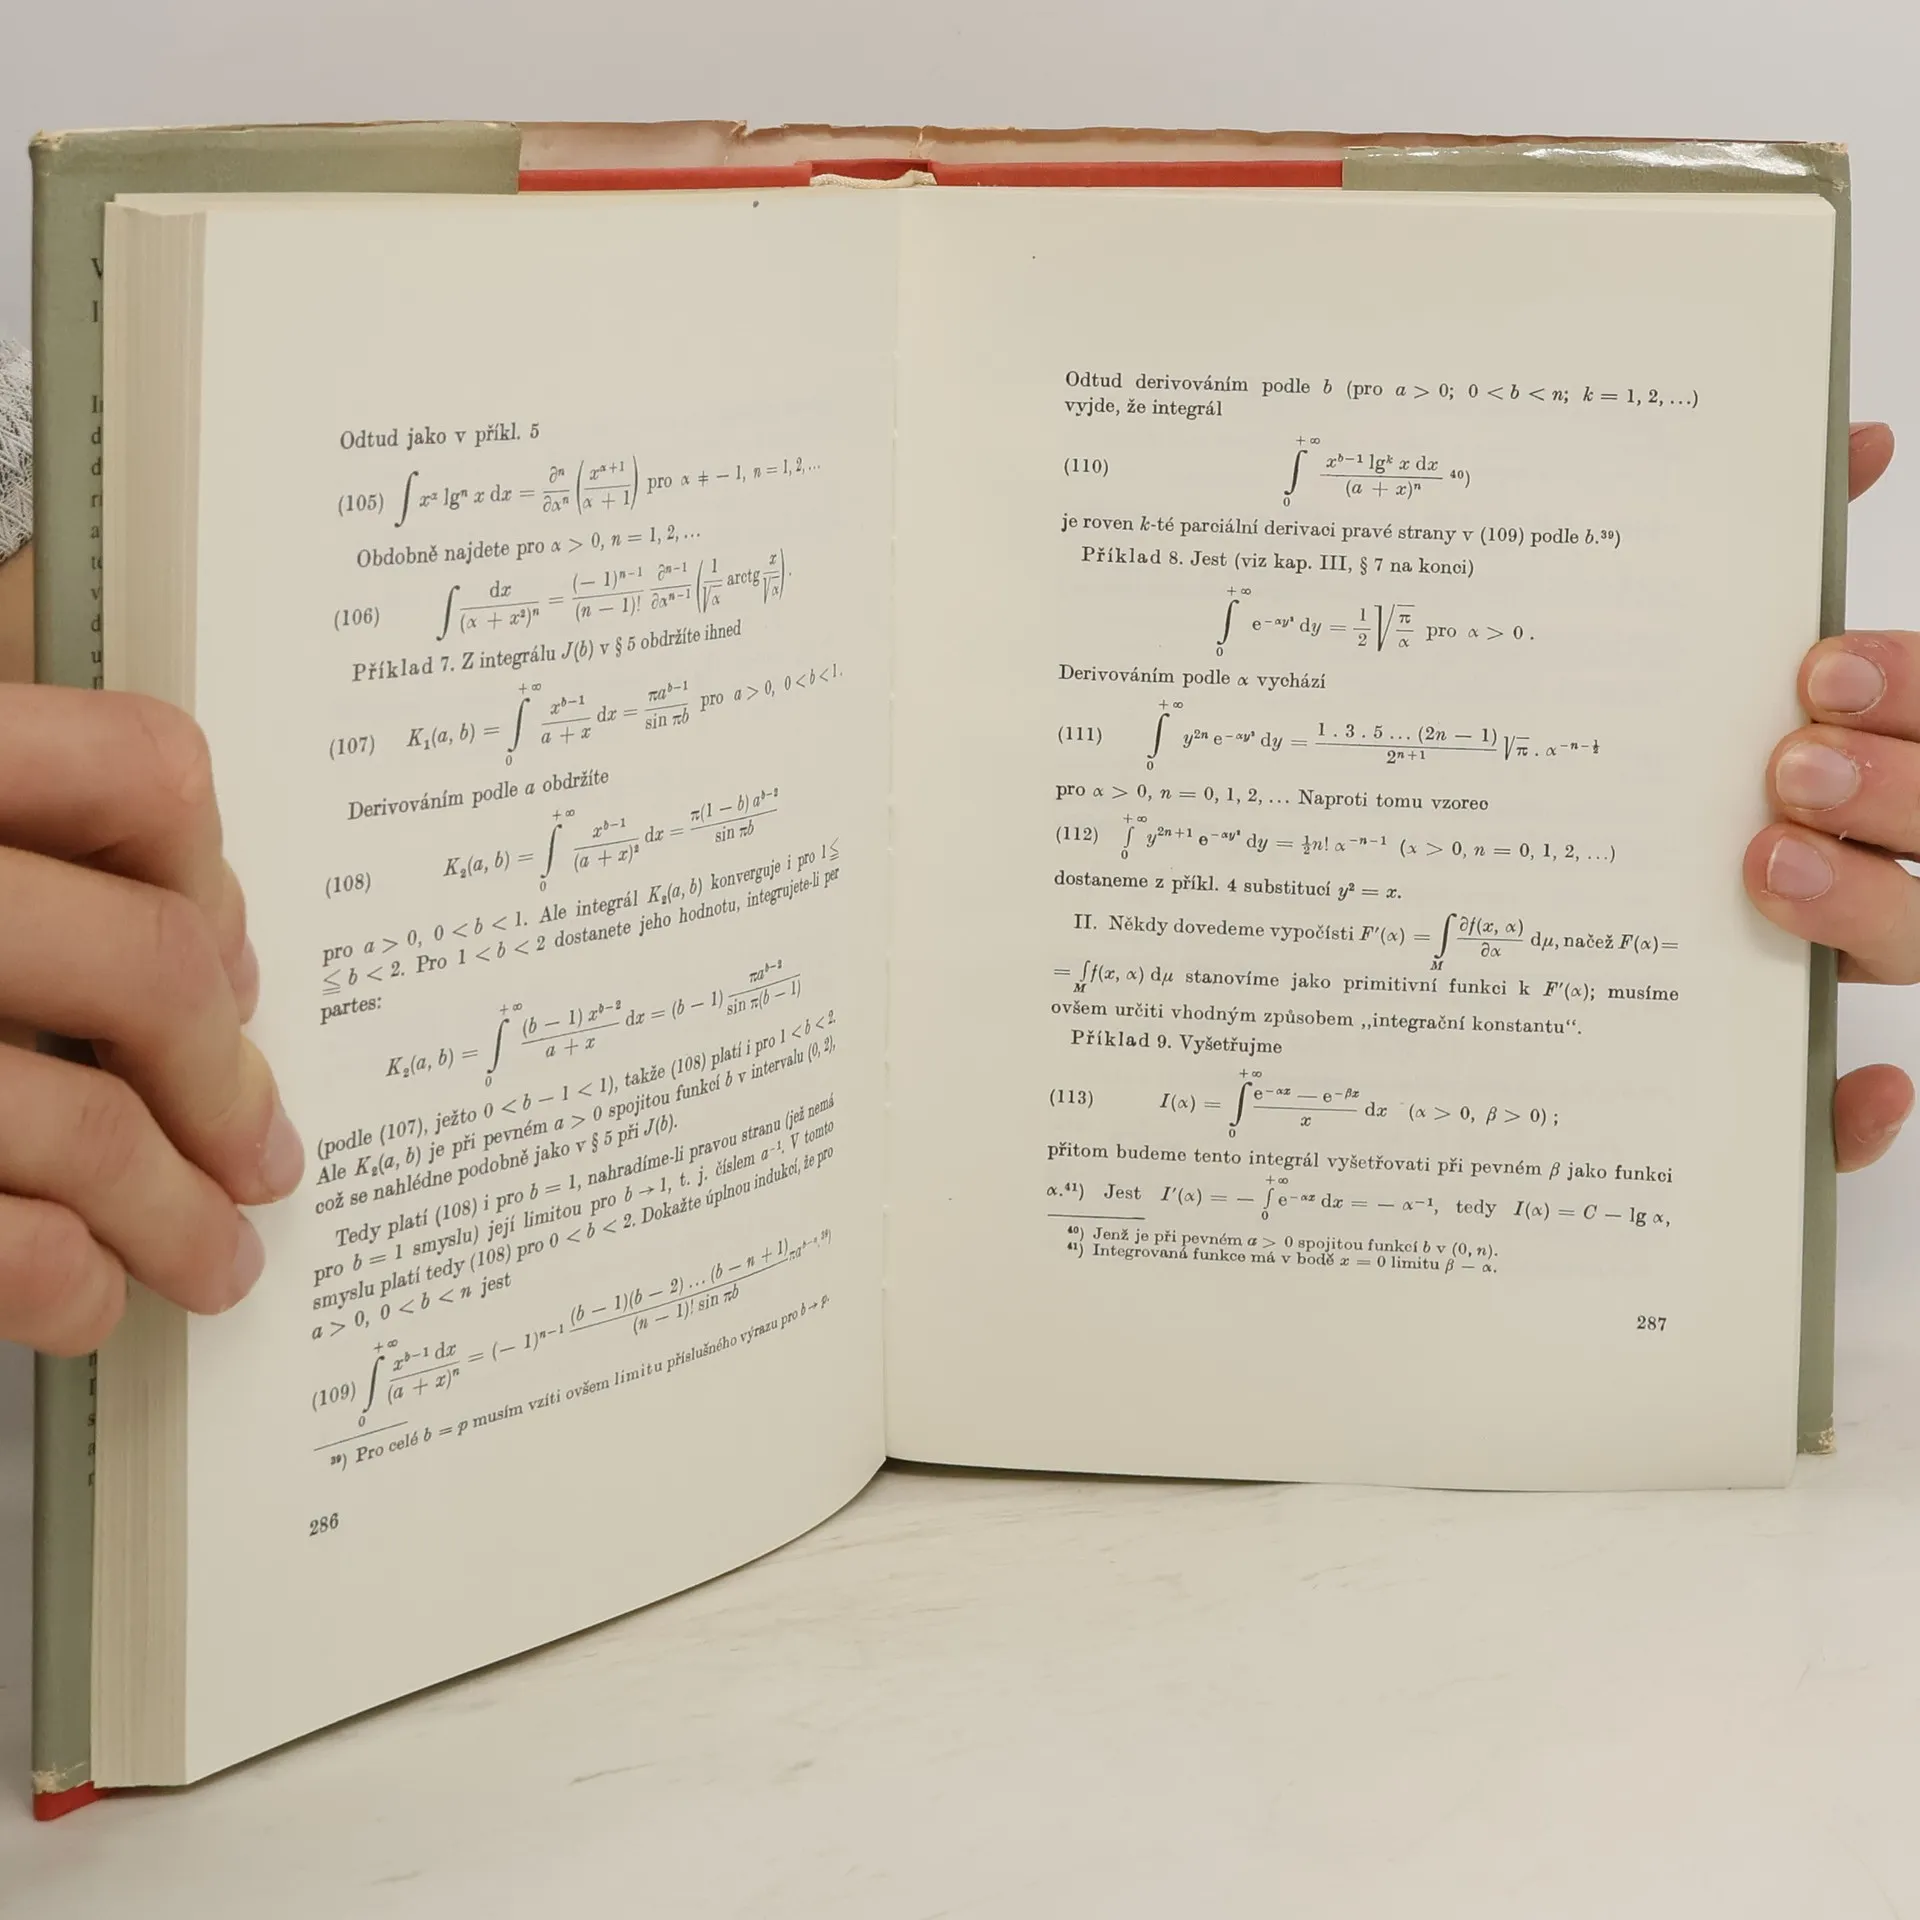 Odtud jako v příkl. 5
(105) ∫ xᵅ lgⁿ x dx = ∂ⁿ/∂αⁿ (x^(α+1)/(α + 1)) pro α ≠ − 1, n = 1, 2, ...
Obdobně najdete pro α > 0, n = 1, 2, ...
(106) ∫ dx/(α + x²)ⁿ = (− 1)^(n−1)/(n − 1)! ∂^(n−1)/∂α^(n−1) (1/√α arctg x/√α).
Příklad 7. Z integrálu J(b) v § 5 obdržíte ihned
(107) K₁(a, b) = ∫₀^(+∞) x^(b−1)/(a + x) dx = πa^(b−1)/sin πb pro a > 0, 0 < b < 1.
Derivováním podle a obdržíte
(108) K₂(a, b) = ∫₀^(+∞) x^(b−1)/(a + x)² dx = π(1 − b) a^(b−2)/sin πb
pro a > 0, 0 < b < 1. Ale integrál K₂(a, b) konverguje i pro 1 ≦
≦ b < 2. Pro 1 < b < 2 dostanete jeho hodnotu, integrujete-li per
partes:
K₂(a, b) = ∫₀^(+∞) (b − 1) x^(b−2)/(a + x) dx = (b − 1) πa^(b−2)/sin π(b − 1)
(podle (107), ježto 0 < b − 1 < 1), takže (108) platí i pro 1 < b < 2.
Ale K₂(a, b) je při pevném a > 0 spojitou funkcí b v intervalu (0, 2),
což se nahlédne podobně jako v § 5 při J(b).
Tedy platí (108) i pro b = 1, nahradíme-li pravou stranu (jež nemá
pro b = 1 smyslu) její limitou pro b → 1, t. j. číslem a⁻¹. V tomto
smyslu platí tedy (108) pro 0 < b < 2. Dokažte úplnou indukcí, že pro
a > 0, 0 < b < n jest
(109) ∫₀^(+∞) x^(b−1) dx/(a + x)ⁿ = (− 1)^(n−1) (b − 1)(b − 2) ... (b − n + 1)/((n − 1)! sin πb) πa^(b−n).³⁹)
³⁹) Pro celé b = p musím vzíti ovšem limitu příslušného výrazu pro b → p.
286
Odtud derivováním podle b (pro a > 0; 0 < b < n; k = 1, 2, ...)
vyjde, že integrál
(110) ∫₀^(+∞) x^(b−1) lgᵏ x dx/(a + x)ⁿ ⁴⁰)
je roven k-té parciální derivaci pravé strany v (109) podle b.³⁹)
Příklad 8. Jest (viz kap. III, § 7 na konci)
∫₀^(+∞) e^(−αy²) dy = 1/2 √(π/α) pro α > 0.
Derivováním podle α vychází
(111) ∫₀^(+∞) y²ⁿ e^(−αy²) dy = 1 . 3 . 5 ... (2n − 1)/2^(n+1) √π . α^(−n−½)
pro α > 0, n = 0, 1, 2, ... Naproti tomu vzorec
(112) ∫₀^(+∞) y^(2n+1) e^(−αy²) dy = ½n! α^(−n−1) (α > 0, n = 0, 1, 2, ...)
dostaneme z příkl. 4 substitucí y² = x.
II. Někdy dovedeme vypočísti F′(α) = ∫_M ∂f(x, α)/∂α dμ, načež F(α) =
= ∫_M f(x, α) dμ stanovíme jako primitivní funkci k F′(α); musíme
ovšem určiti vhodným způsobem „integrační konstantu“.
Příklad 9. Vyšetřujme
(113) I(α) = ∫₀^(+∞) (e^(−αx) − e^(−βx))/x dx (α > 0, β > 0);
přitom budeme tento integrál vyšetřovati při pevném β jako funkci
α.⁴¹) Jest I′(α) = − ∫₀^(+∞) e^(−αx) dx = − α⁻¹, tedy I(α) = C − lg α,
⁴⁰) Jenž je při pevném a > 0 spojitou funkcí b v (0, n).
⁴¹) Integrovaná funkce má v bodě x = 0 limitu β − α.
287